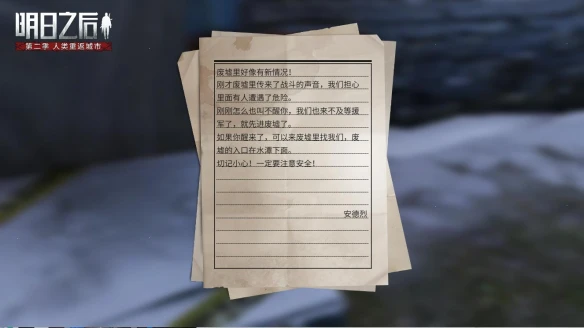 明日之后
第二季 人类重返城市
废墟里好像有新情况！
刚才废墟里传来了战斗的声音，我们担心
里面有人遭遇了危险。
刚刚怎么也叫不醒你，我们也来不及等援
军了，就先进废墟了。
如果你醒来了，可以来废墟里找我们，废
墟的入口在水潭下面。
切记小心！一定要注意安全！
安德烈